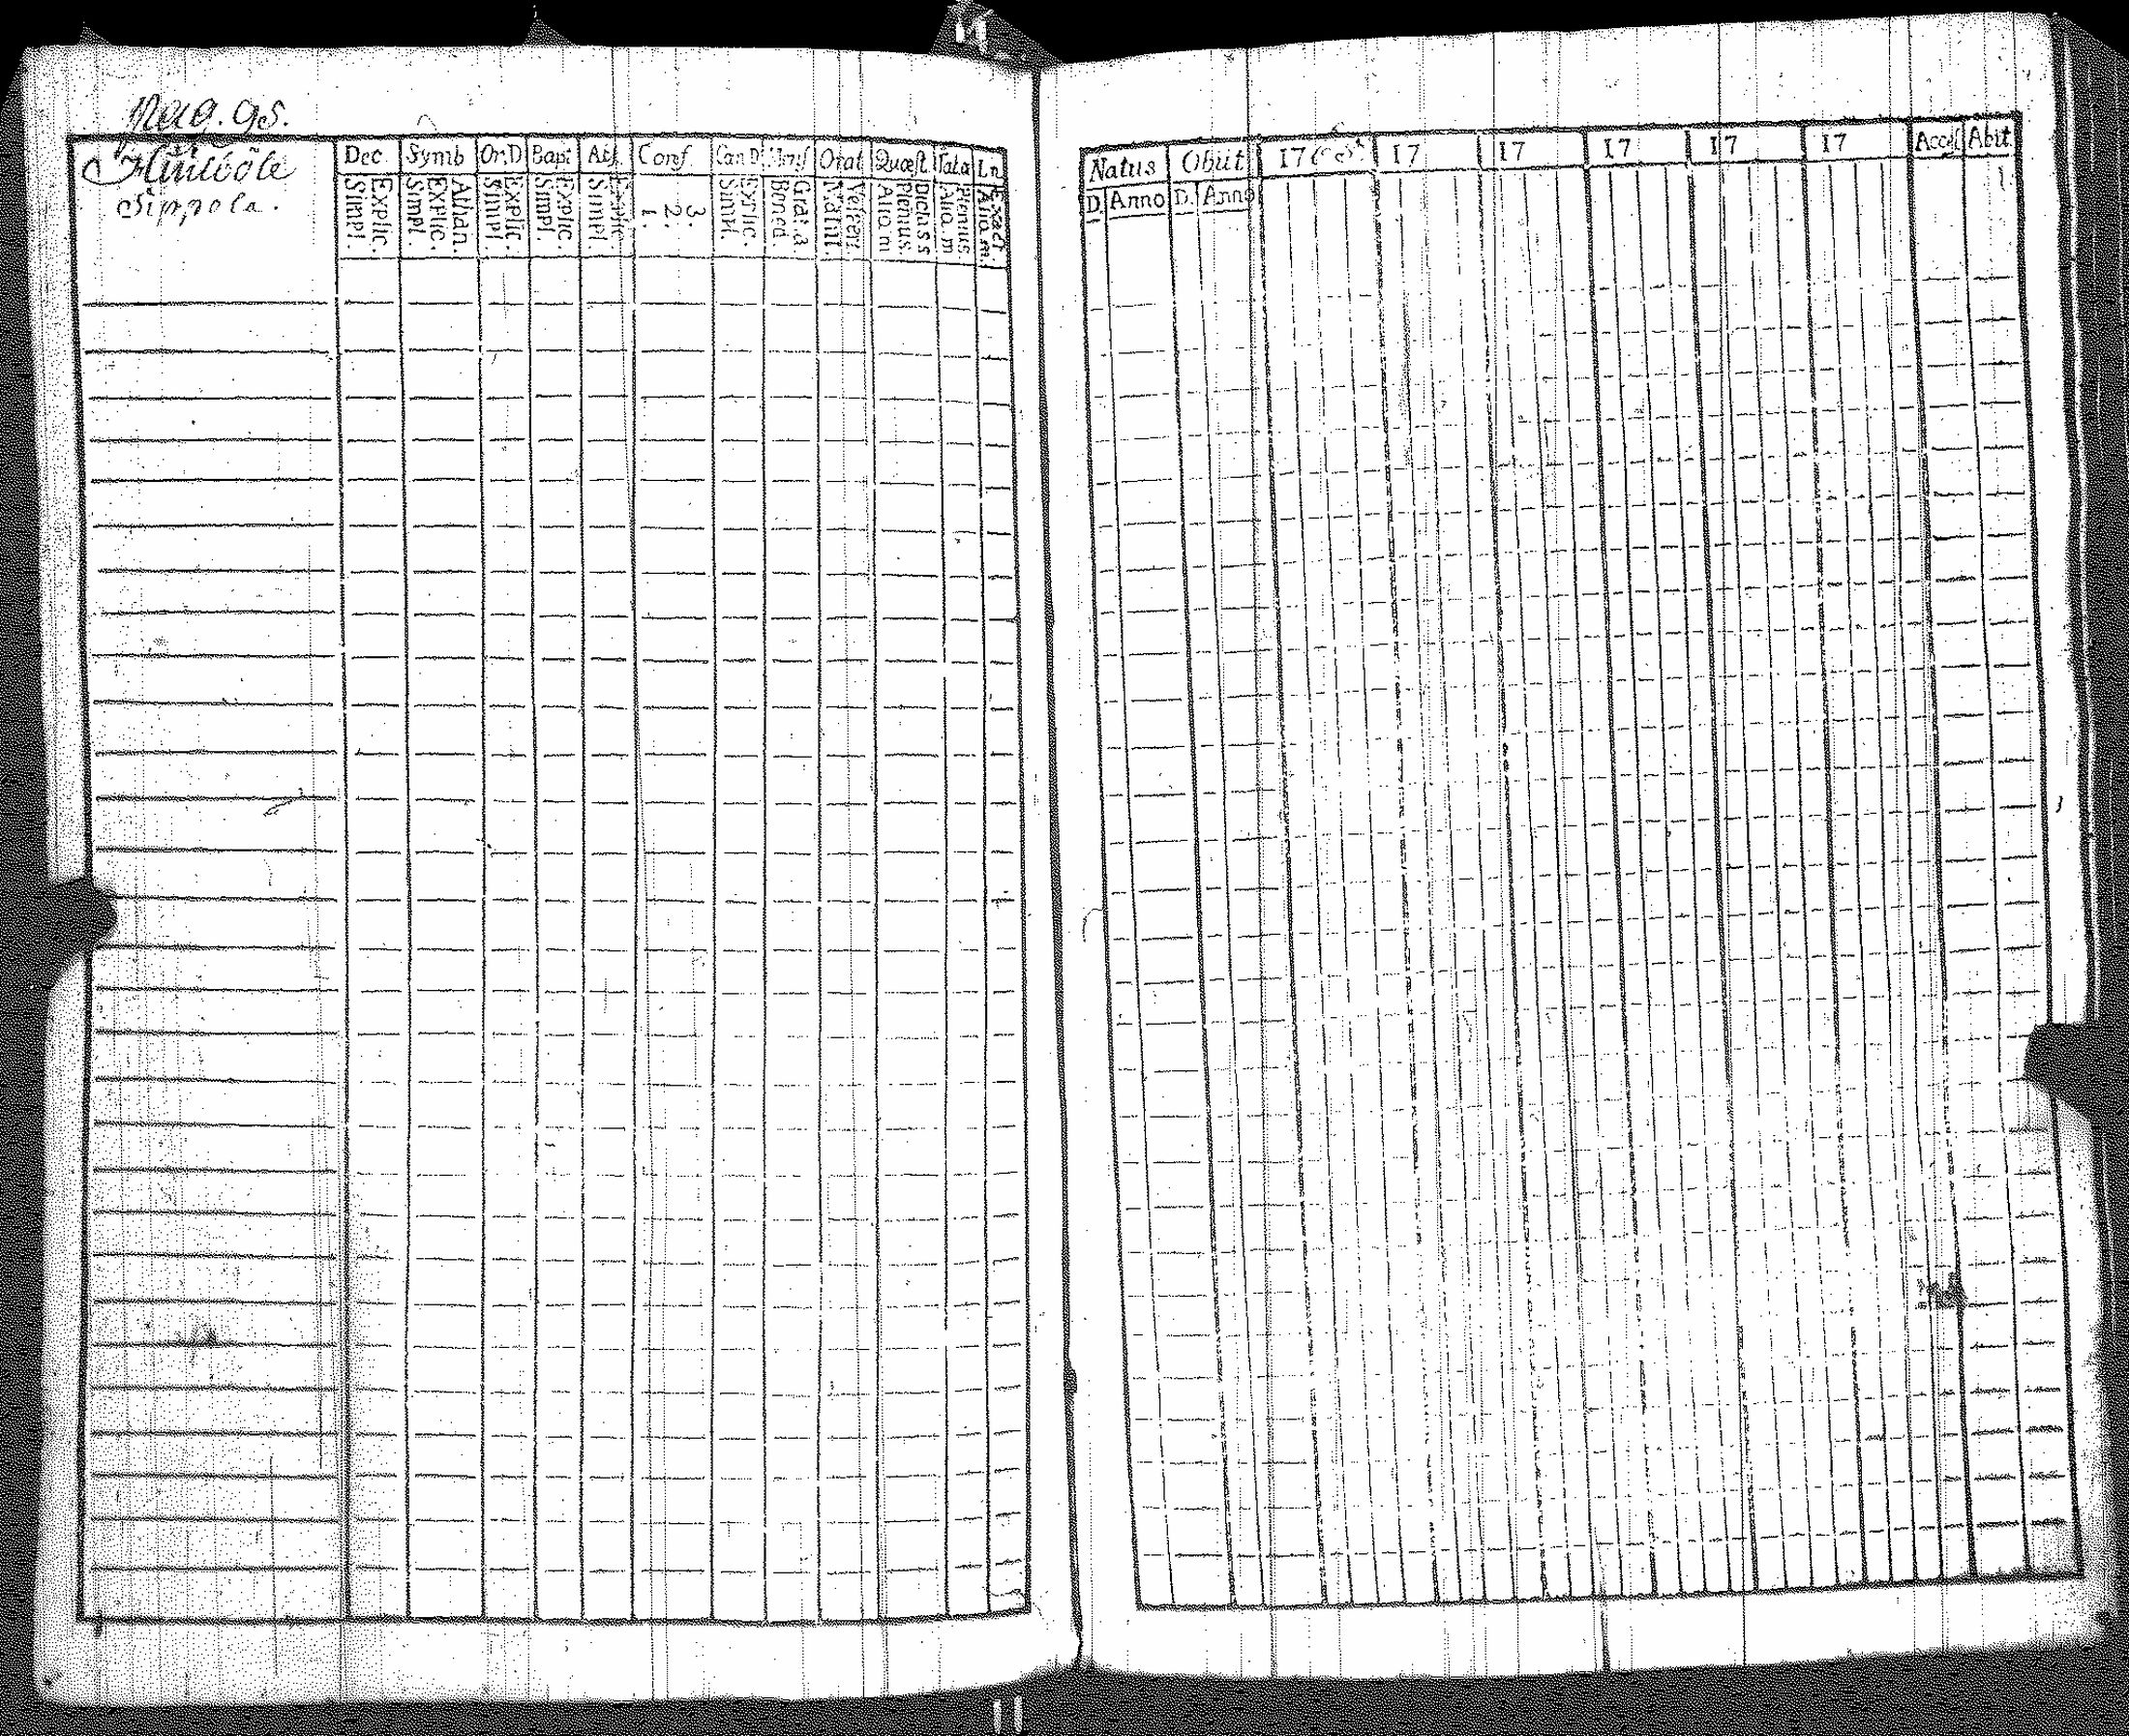 Pag. 95.
Sippola.
Dec. Symb Or.D Bapt Conf. Can D Orat Quæst Tala
Simpl. Explic. Simpl. Explic. Athan. Simpl. Explic. Simpl. Explic. Simpl. Explic. 1. 2. 3. Simpl. Explic. Bened. Matut. Vesper. Alio m Plenius. Alio m Plenius. Alio m. Exact.
Natus Obiit 17 17 17 17 17 17 Abit
D. Anno D. Anno